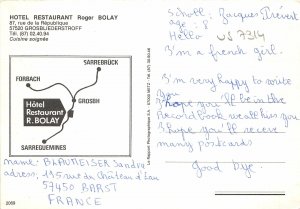 HOTEL RESTAURANT Roger BOLAY
87, rue de la République
57520 GROSBLIEDERSTROFF
Tél. (87) 02.40.94
Cuisine soignée
SARREBRÜCK
FORBACH
GROSBH
Hôtel
Restaurant
R. BOLAY
SARREGUEMINES
name: BLAUMEISER Sandra
adress: 195 rue du Château d'Eau
57450 BARST
FRANCE
2069
La Rapport Photographique S.A.
57000 METZ
School: Jacques Prévert
age: 8
Hello US 7314
I'm a french girl.
I'm very happy to write
You
I hope you'll be in the
Record book, we all kiss you
I hope you'll receive
many postcards
Good bye.